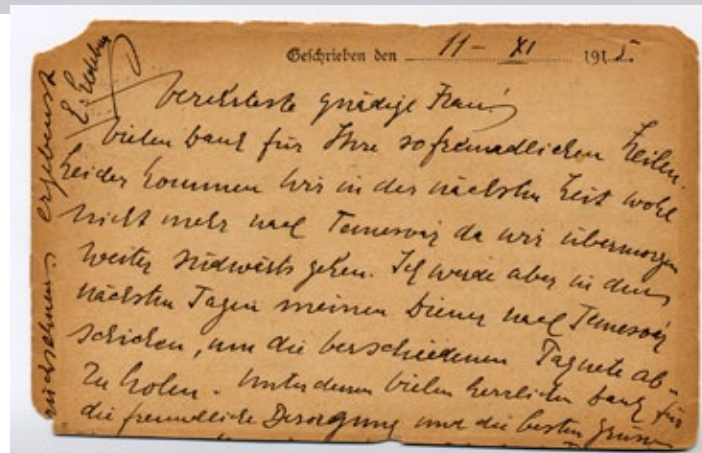 Geschrieben den 11 - XI 1915.
Verehrteste gnädige Frau!
Vielen Dank für Ihre so freundlichen Zeilen.
Leider kommen wir in der nächsten Zeit wohl
nicht mehr nach Temesvár da wir übermorgen
weiter südwärts gehen. Ich werde aber in den
nächsten Tagen meinen Diener nach Temesvár
schicken, um die verschiedenen Paquete ab-
zuholen. Unterdenen vielen herzlichen Dank für
die freundliche Besorgung und die besten Grüsse
ergebenst